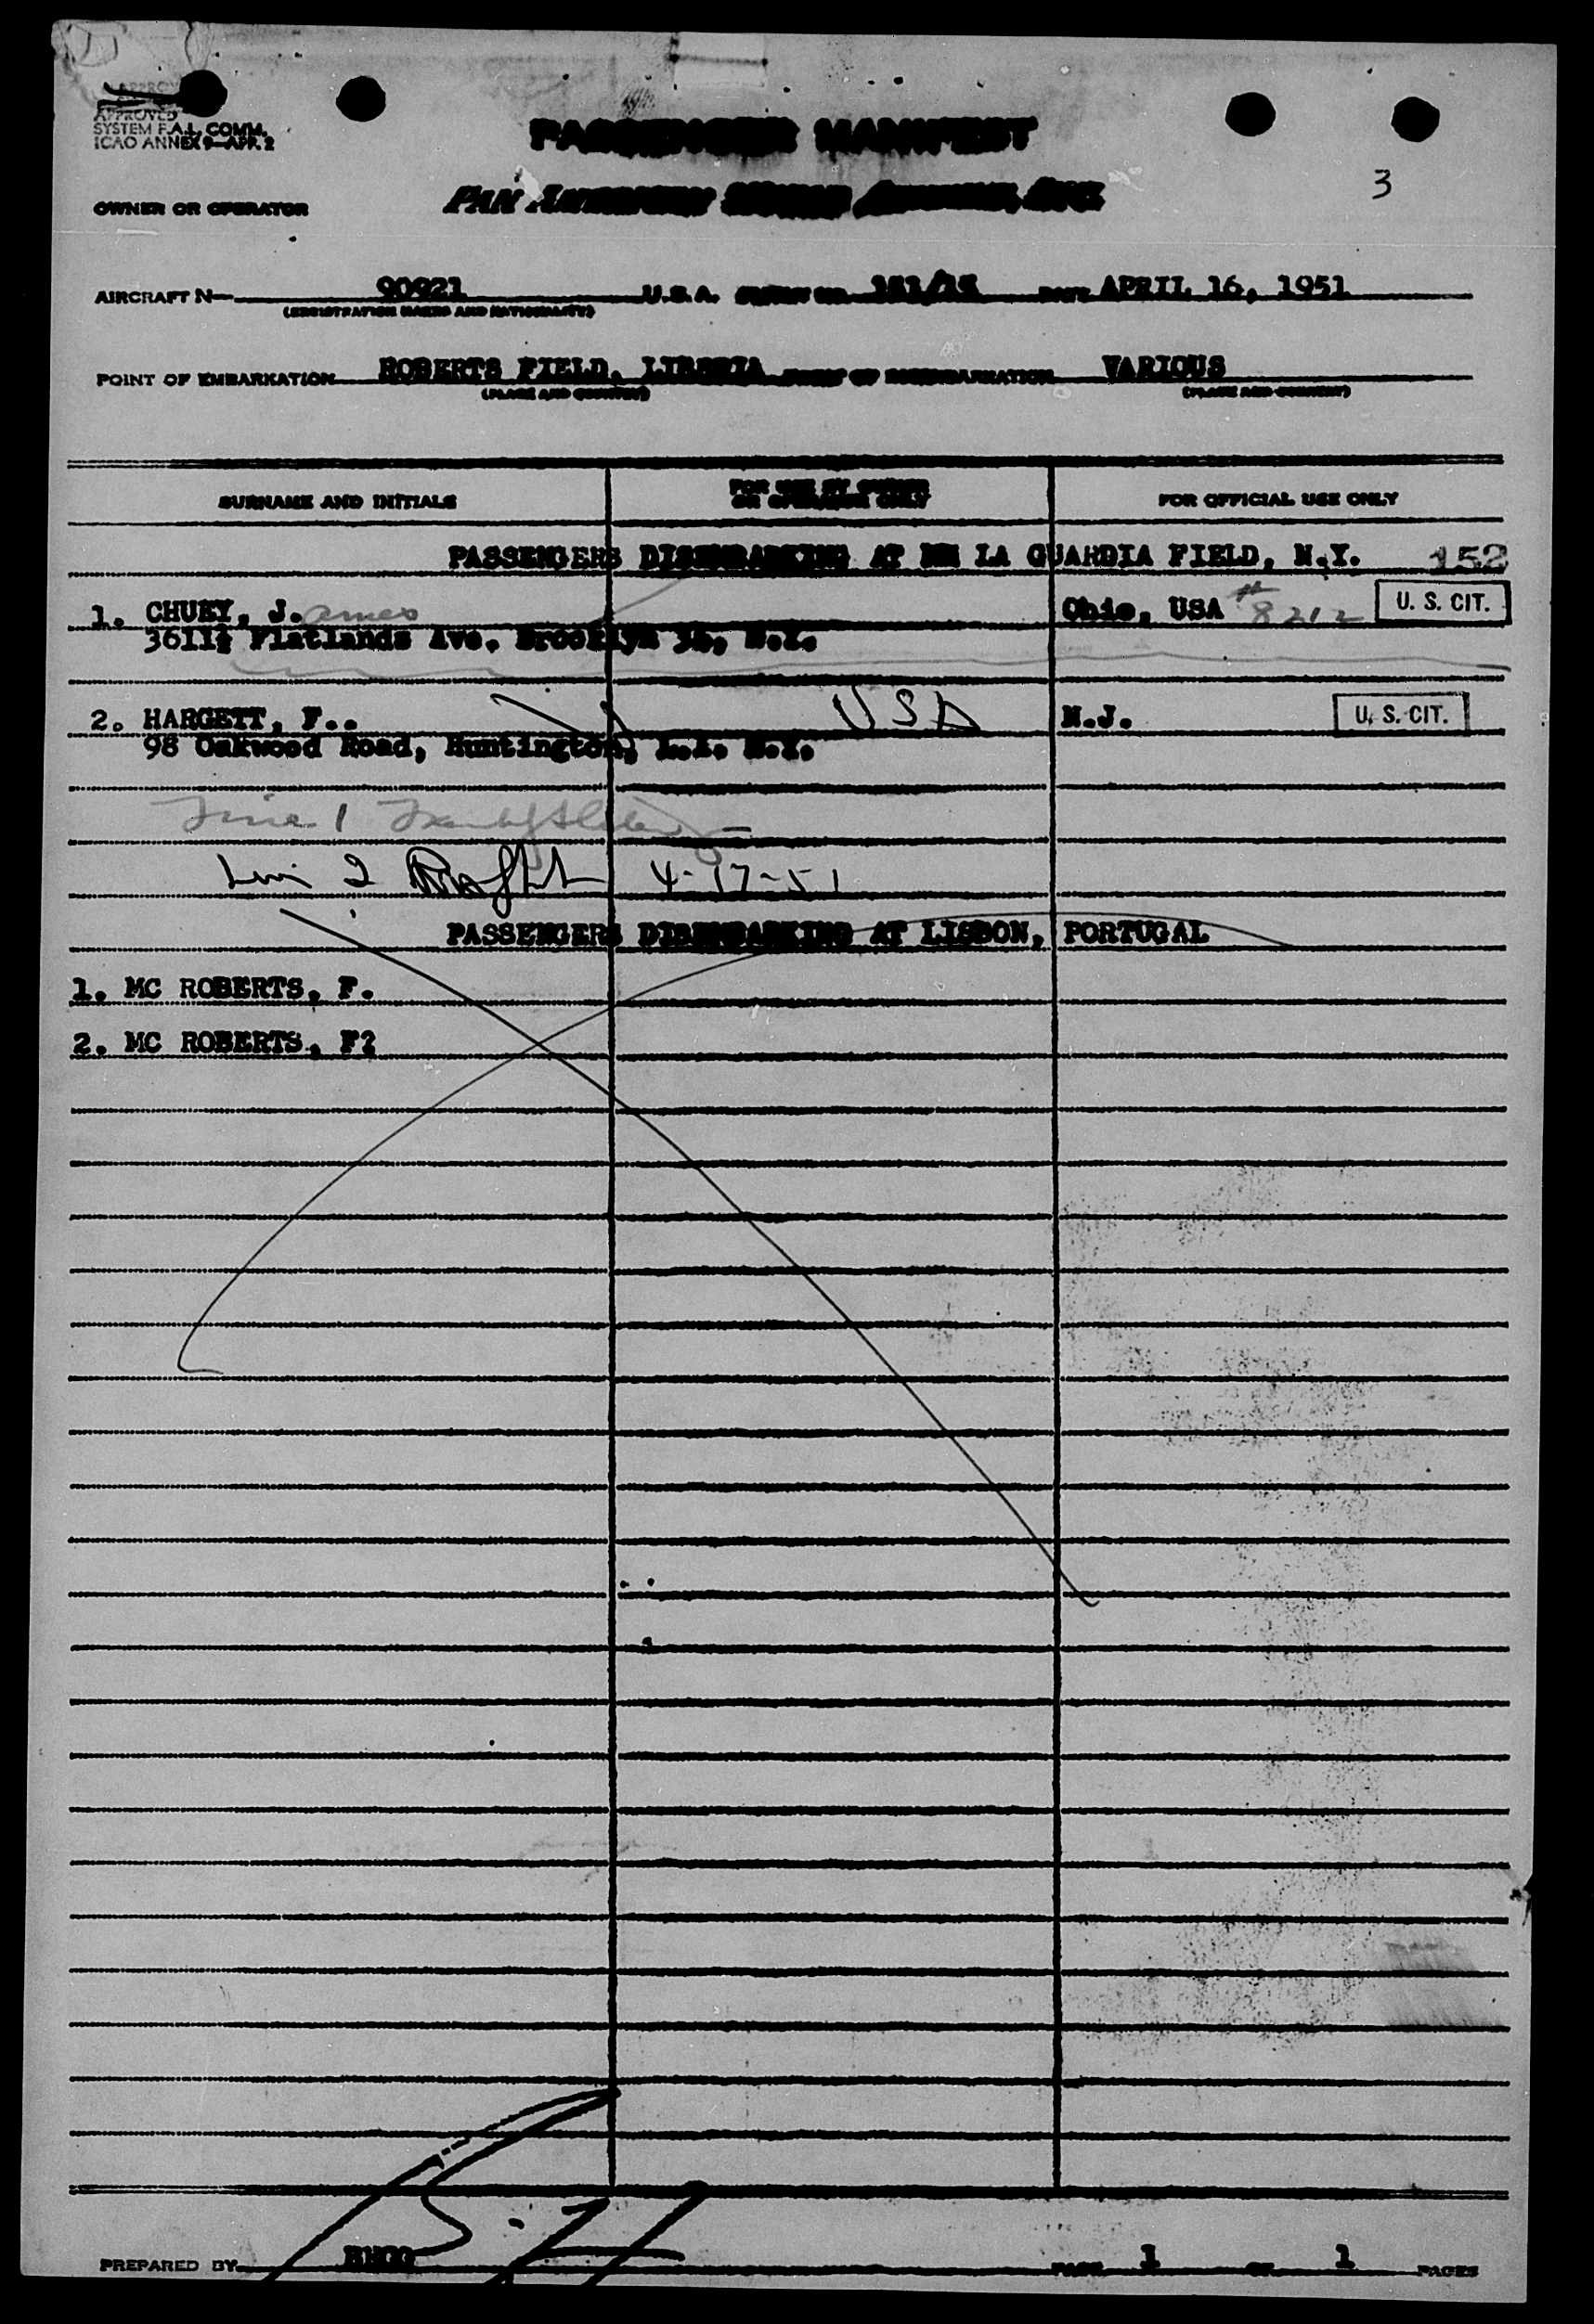 APPROVED
SYSTEM F.A.L. COMM.
ICAO ANNEX 9-APP. 2
PASSENGER MANIFEST
3
OWNER OR OPERATOR PAN AMERICAN WORLD AIRWAYS, INC.
AIRCRAFT N 90921 U.S.A. DATE APRIL 16, 1951
(REGISTRATION MARKS AND NATIONALITY)
POINT OF EMBARKATION ROBERTS FIELD, LIBERIA POINT OF DISEMBARKATION VARIOUS
(PLACE AND COUNTRY) (PLACE AND COUNTRY)
SURNAME AND INITIALS FOR USE BY OWNER OR OPERATOR ONLY FOR OFFICIAL USE ONLY
PASSENGERS DISEMBARKING AT LA GUARDIA FIELD, N.Y. 152
1. CHUEY, J.ames Ohio, USA # 8212 U. S. CIT.
3611½ Flatlands Ave. Brooklyn 34, N.Y.
2. HARGETT, F.. USA N.J. U. S. CIT.
98 Oakwood Road, Huntington, L.I. N.Y.
Line 1
Line 2 4-17-51
PASSENGERS DISEMBARKING AT LISBON, PORTUGAL
1. MC ROBERTS, F.
2. MC ROBERTS, F?
PREPARED BY PAGE 1 OF 1 PAGES